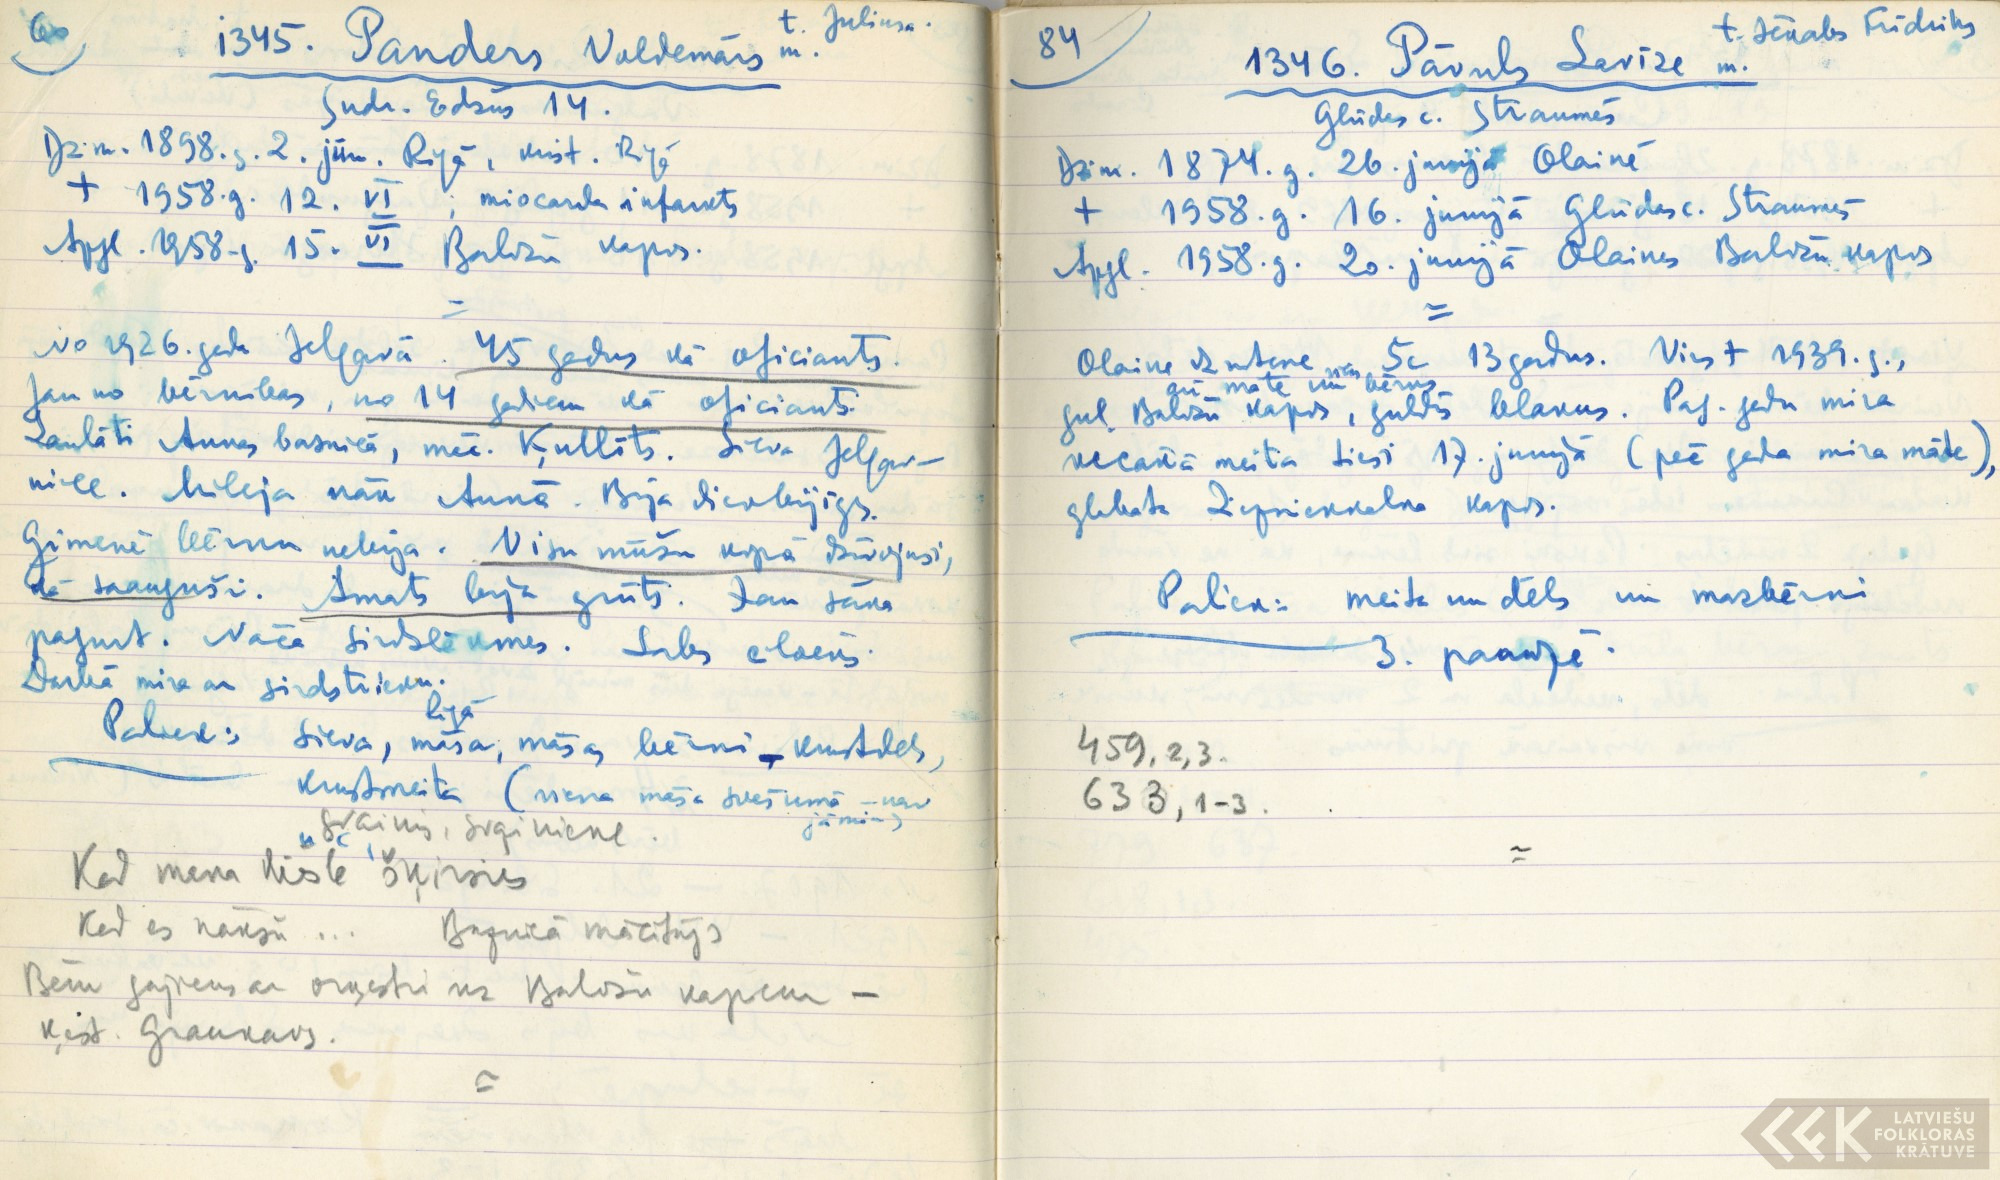 60
1345. Panders Voldemārs t. Juliusa.
m.
Sudr. Edžus 14.
Dzim. 1898. g. 2. jūn. Rīgā, krist. Rīgā
+ 1958. g. 12. VI, miocarda infarkts
Apgl. 1958. g. 15. VI Baložu kapos.
=
No 1926. gada Jelgavā. 45 gadus kā oficiants.
Jau no bērnības, no 14 gadiem kā oficiants.
Laulāti Annas baznīcā, māc. Ķullīts. Sieva Jelgav-
niece. Mileja nāk Annā. Bija dievbijīgs.
Ģimenē bērnu nebija. Visu mūžu kopā dzīvojusi,
kā saauguši. Amats bija grūts. Jau sāka
pagurt. Nāca sirdslēkmes. Labs cilvēks.
Darbā mira ar sirdstrieku.
Paliek: sieva, māsa, Rīgā māsas bērni - krustdēls,
krustmeita (viena māsa svešumā - nav
jāmin)
svainis, svainiene.
Kad mana dvēsle šķirsies
Kad es nākšu ... Baznīcā mācītājs
Bēru gājiens ar orķestri uz Baložu kapiem -
ķest. Graukavs.
=
84
1346. Pāvuls Lavīze t. Jēkabs Fridriķis
m.
Glūdas c. Straumēs
Dzim. 1874. g. 26. junijā Olainē
+ 1958. g. 16. junijā Glūdas c. Straumēs
Apgl. 1958. g. 20. junijā Olaines Baložu kapos
=
Olainē dzimtene 13 gadus. Vīrs + 1939. g.,
arī māte un bērns
guļ Baložu kapos, guldīs blakus. Pag. gadu mira
vecākā meita tieši 17. junijā (pēc gada mira māte),
glabāta Ziepniekkalna kapos.
Paliek: meita un dēls un mazbērni
3. paaudzē.
459, 2, 3.
633, 1-3.
=
LATVIEŠU
FOLKLORAS
KRĀTUVE